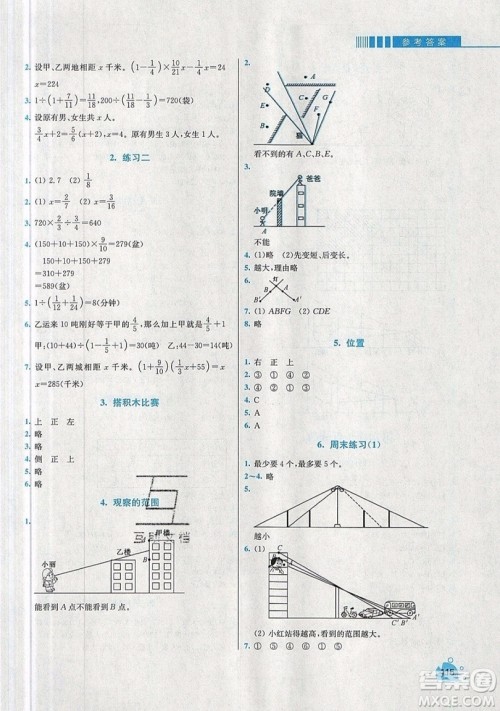 参考答案
2. 设甲、乙两地相距 x 千米。(1-1/4)×1/7x+1/4x=24
x=224
3. 1÷(1+7/11)=11/18,200÷(1-11/18)=720(袋)
4. 设原有男、女生共 x 人。
3/4x+2=4/5x x=40 原有男生 30 人,女生 10 人。
2. 练习二
1. (1) 2.7 (2) 1/8
2. (1) x=
3. 720×2/3÷3/4=640
4. (150+10+150)×9/10=279(盆)
150+10+150+279
=310+279
=589(盆)
5. 1÷(1/12+1/24)=8(分钟)
6. 乙运来 10 吨刚好等于甲的4/5,那么加上甲等于甲的
甲:(10+44)÷
乙:44-30=14(吨)
7. 设甲、乙两城相距 x 千米。
x=285(千米)
3. 搭积木比赛
1. 上 正 左
2. 略
3. 略
4. 侧 正 上
5. 略
4. 观察的范围
1.
甲楼
乙楼
小丽
B
A
能看到 A 点不能看到 B 点。
2.
A
D
C
G
F
B
E
猫
看不到的有 A、C、B、E。
3.
爸爸
院墙
小明
不能
4. (1)略 (2)先变短、后变长。
5. 越大,理由略
6.
A
B
B′
A′
7. (1) ABFG (2) CDE
8. 略
5. 位置
1. 右 正 上
2. ① ③ ④ ②
3. ① ⑤ ④ ②
4. C
5. A
6. A
6. 周末练习(1)
1. 最少要 4 个,最多要 5 个。
2~4. 略
5.
越小
6. (1)
A
B
B′
A′
(2) 小红站得越高,看到的范围越大。
7. ⑤ ① ④ ⑥
115
MXQE.COM